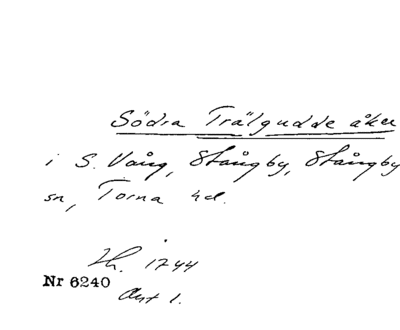 Södra Trälgudde åker
i S. Vång, Stångby, Stångby
sn, Torna hd.
1744
Nr 6240
Akt 1.